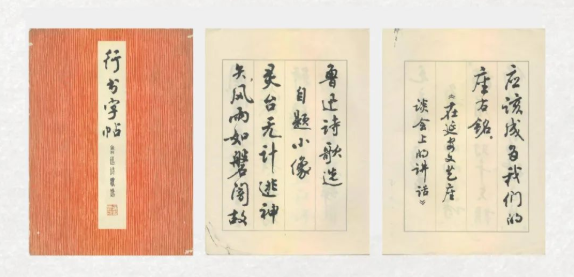 行书字帖
鲁迅诗歌选
鲁迅诗歌选
自题小像
灵台无计逃神
矢风雨如磐闇故
应该成为我们的
座右铭。
《在延安文艺座
谈会上的讲话》